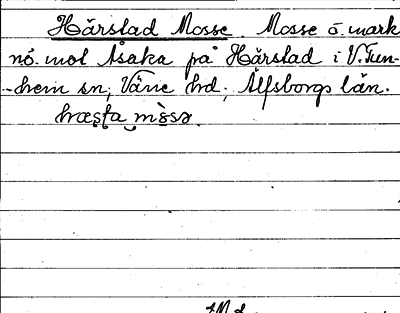 Hårstad Mosse. Mosse ö. mark
nö. mot Åsaka på Hårstad i V. Tun-
-hem sn, Väne hd, Älfsborgs län.
hæsta mossə.